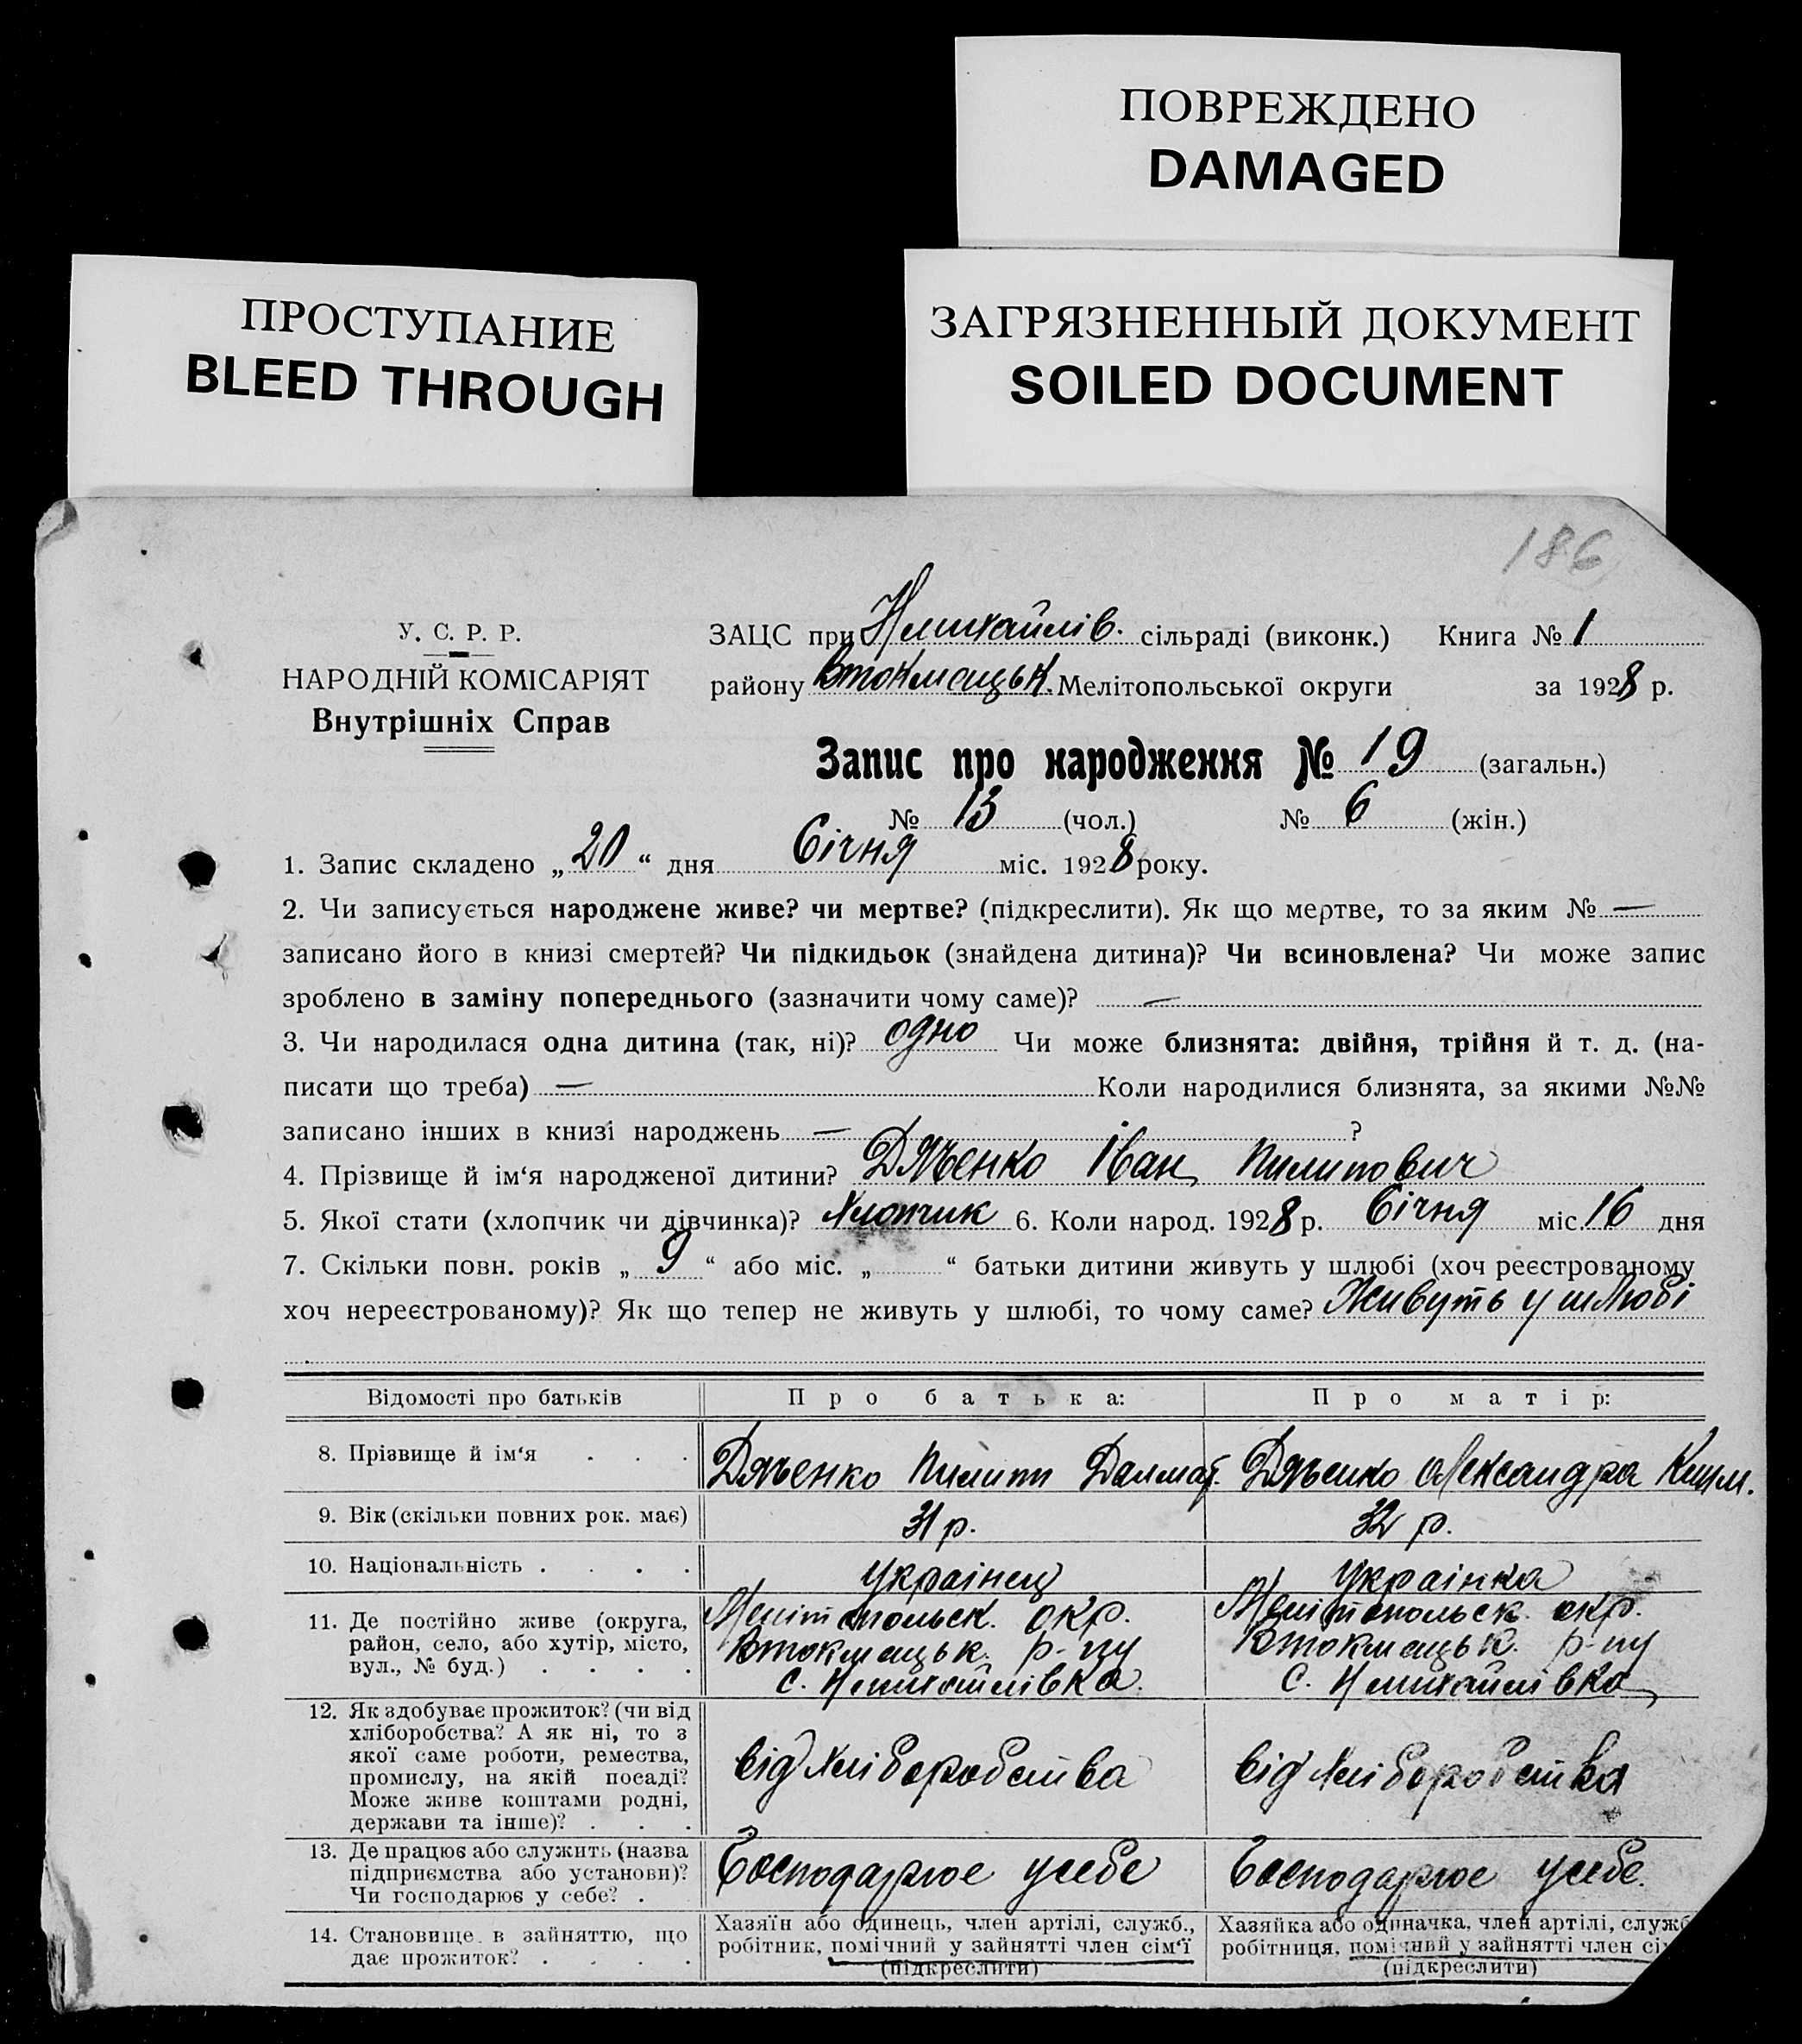 ПОВРЕЖДЕНО
DAMAGED
ПРОСТУПАНИЕ
BLEED THROUGH
ЗАГРЯЗНЕННЫЙ ДОКУМЕНТ
SOILED DOCUMENT
186
У. С. Р. Р.
НАРОДНІЙ КОМІСАРІЯТ
Внутрішніх Справ
ЗАЦС при Н михайлів. сільраді (виконк.) Книга № 1
району Втокмацьк. Мелітопольської округи за 1928 р.
Запис про народження № 19 (загальн.)
№ 13 (чол.) № 6 (жін.)
1. Запис складено „20“ дня Січня міс. 1928 року.
2. Чи записується народжене живе? чи мертве? (підкреслити). Як що мертве, то за яким № —
записано його в книзі смертей? Чи підкидьок (знайдена дитина)? Чи всиновлена? Чи може запис
зроблено в заміну попереднього (зазначити чому саме)? —
3. Чи народилася одна дитина (так, ні)? одно Чи може близнята: двійня, трійня й т. д. (на-
писати що треба) — Коли народилися близнята, за якими №№
записано інших в книзі народжень — ?
4. Прізвище й ім‘я народженої дитини? Дяченко Іван Пилипович
5. Якої стати (хлопчик чи дівчинка)? Хлопчик 6. Коли народ. 1928 р. Січня міс. 16 дня
7. Скільки повн. років „9“ або міс. „ “ батьки дитини живуть у шлюбі (хоч реєстрованому
хоч нереєстрованому)? Як що тепер не живуть у шлюбі, то чому саме? Живуть у шлюбі
Відомості про батьків Про батька: Про матір:
8. Прізвище й ім‘я . . . Дяченко Пилип Далмат. Дяченко Олександра Клим.
9. Вік (скільки повних рок. має) 31 р. 32 р.
10. Національність . . . . Украінец Украінка
11. Де постійно живе (округа, район, село, або хутір, місто, вул., № буд.) . . . .
Мелітопольск. окр. Мелітопольск. окр.
Втокмацьк. р-ну Втокмацьк. р-ну
с. Н михайлівка. с. Н михайлівка
12. Як здобуває прожиток? (чи від
хліборобства? А як ні, то з
якої саме роботи, ремества,
промислу, на якій посаді?
Може живе коштами родні,
держави та інше)? . . .
від хліборобства від хліборобства
13. Де працює або служить (назва
підприємства або установи)?
Чи господарює у себе? .
Господарює у себе Господарює у себе.
14. Становище в зайняттю, що
дає прожиток? . . . .
Хазяїн або одинець, член артілі, служб.,
робітник, помічний у зайнятті член сім‘ї
(підкреслити)
Хазяйка або одиначка, член артілі, служб
робітниця, помічний у зайнятті член сі
(підкреслити)